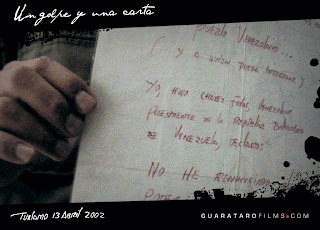 Un golpe y una carta
Pueblo Venezolano...
(y a quien pueda interesar)
Yo, Hugo Chávez Frías, Venezolano
Presidente de la República Bolivariana
de Venezuela, declaro:
No he renunciado
Turiamo 13 Abril 2002
GUARATAROFILMS.COM